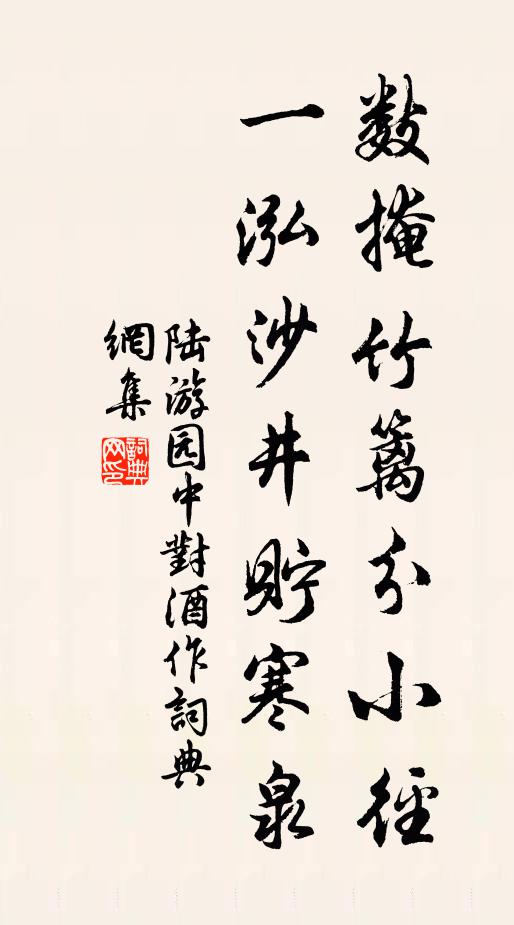 数掩竹篱分小徑
一泓沙井貯寒泉
陆游园中對酒作詞典
網集
詞典网印